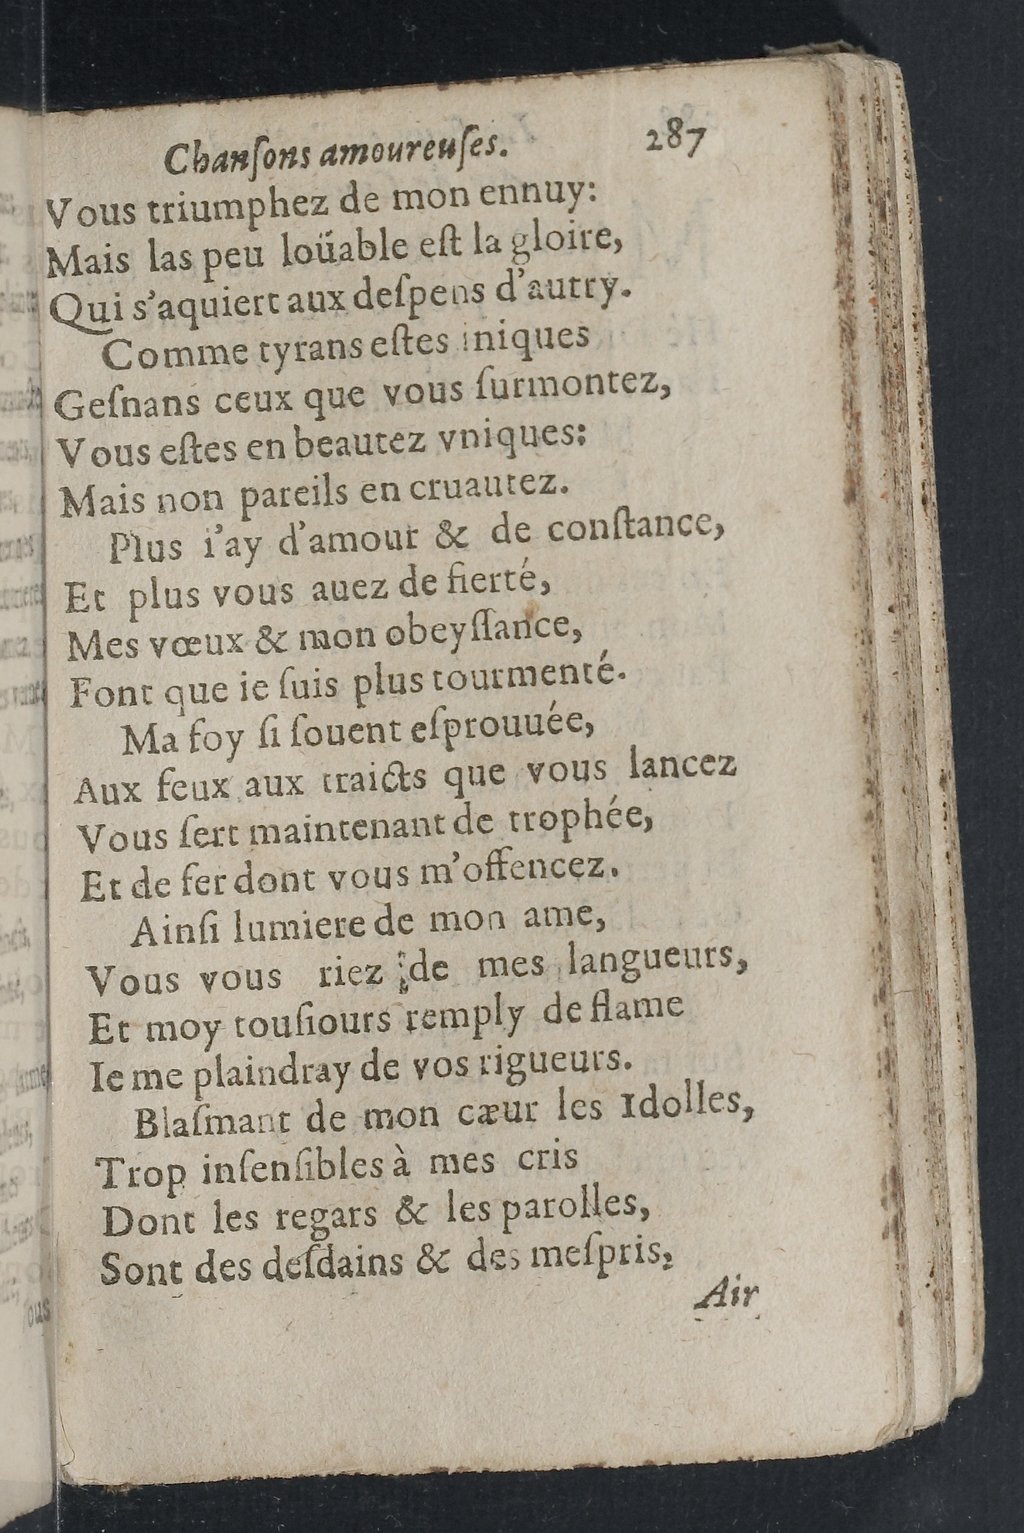 Chanſons amoureuſes. 287
Vous triumphez de mon ennuy:
Mais las peu loüable eſt la gloire,
Qui s'aquiert aux deſpens d'autry.
Comme tyrans eſtes iniques
Geſnans ceux que vous ſurmontez,
Vous eſtes en beautez vniques:
Mais non pareils en cruautez.
Plus i'ay d'amour & de conſtance,
Et plus vous auez de fierté,
Mes vœux & mon obeyſſance,
Font que ie ſuis plus tourmenté.
Ma foy ſi ſouent eſprouuée,
Aux feux aux traicts que vous lancez
Vous ſert maintenant de trophée,
Et de fer dont vous m'offencez.
Ainſi lumiere de mon ame,
Vous vous riez de mes langueurs,
Et moy touſiours remply de flame
Ie me plaindray de vos rigueurs.
Blaſmant de mon cæur les Idolles,
Trop inſenſibles à mes cris
Dont les regars & les parolles,
Sont des deſdains & des meſpris,
Air